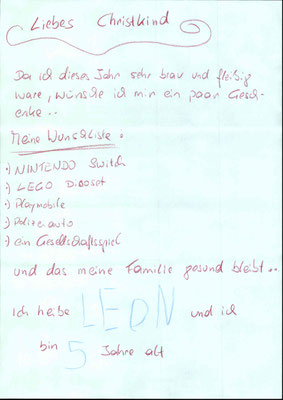 Liebes Christkind
Da ich dieses Jahr sehr brav und fleißig
ware, wünsche ich mir ein paar Gesch-
enke..
Meine Wunschliste:
·) NINTENDO Switch
·) LEGO Dinoset
·) Playmobile
·) Polizeiauto
·) ein Gesellschaftsspiel
und das meine Familie gesund bleibt..
Ich heiße LEON und ich
bin 5 Jahre alt